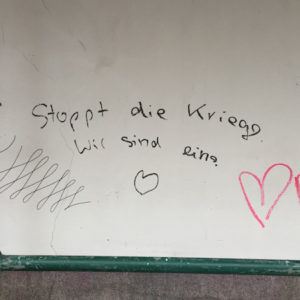 Stoppt die Kriege.
Wir sind eins.